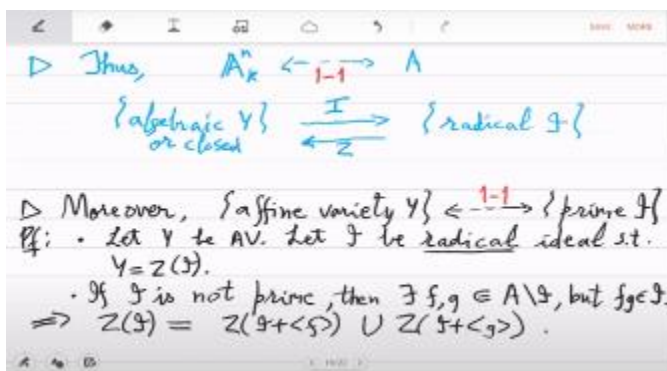 SAVE MORE
▷ Thus, 𝔸ⁿₖ <--1-1--> A
{algebraic Y} I ⇄ Z {radical 𝓘}
or closed
▷ Moreover, {affine variety Y} <--1-1--> {prime 𝓘}
Pf: · Let Y be AV. Let 𝓘 be radical ideal s.t.
Y = Z(𝓘).
· If 𝓘 is not prime, then ∃ f,g ∈ A\𝓘, but fg∈𝓘.
⇒ Z(𝓘) = Z(𝓘+<f>) ∪ Z(𝓘+<g>).